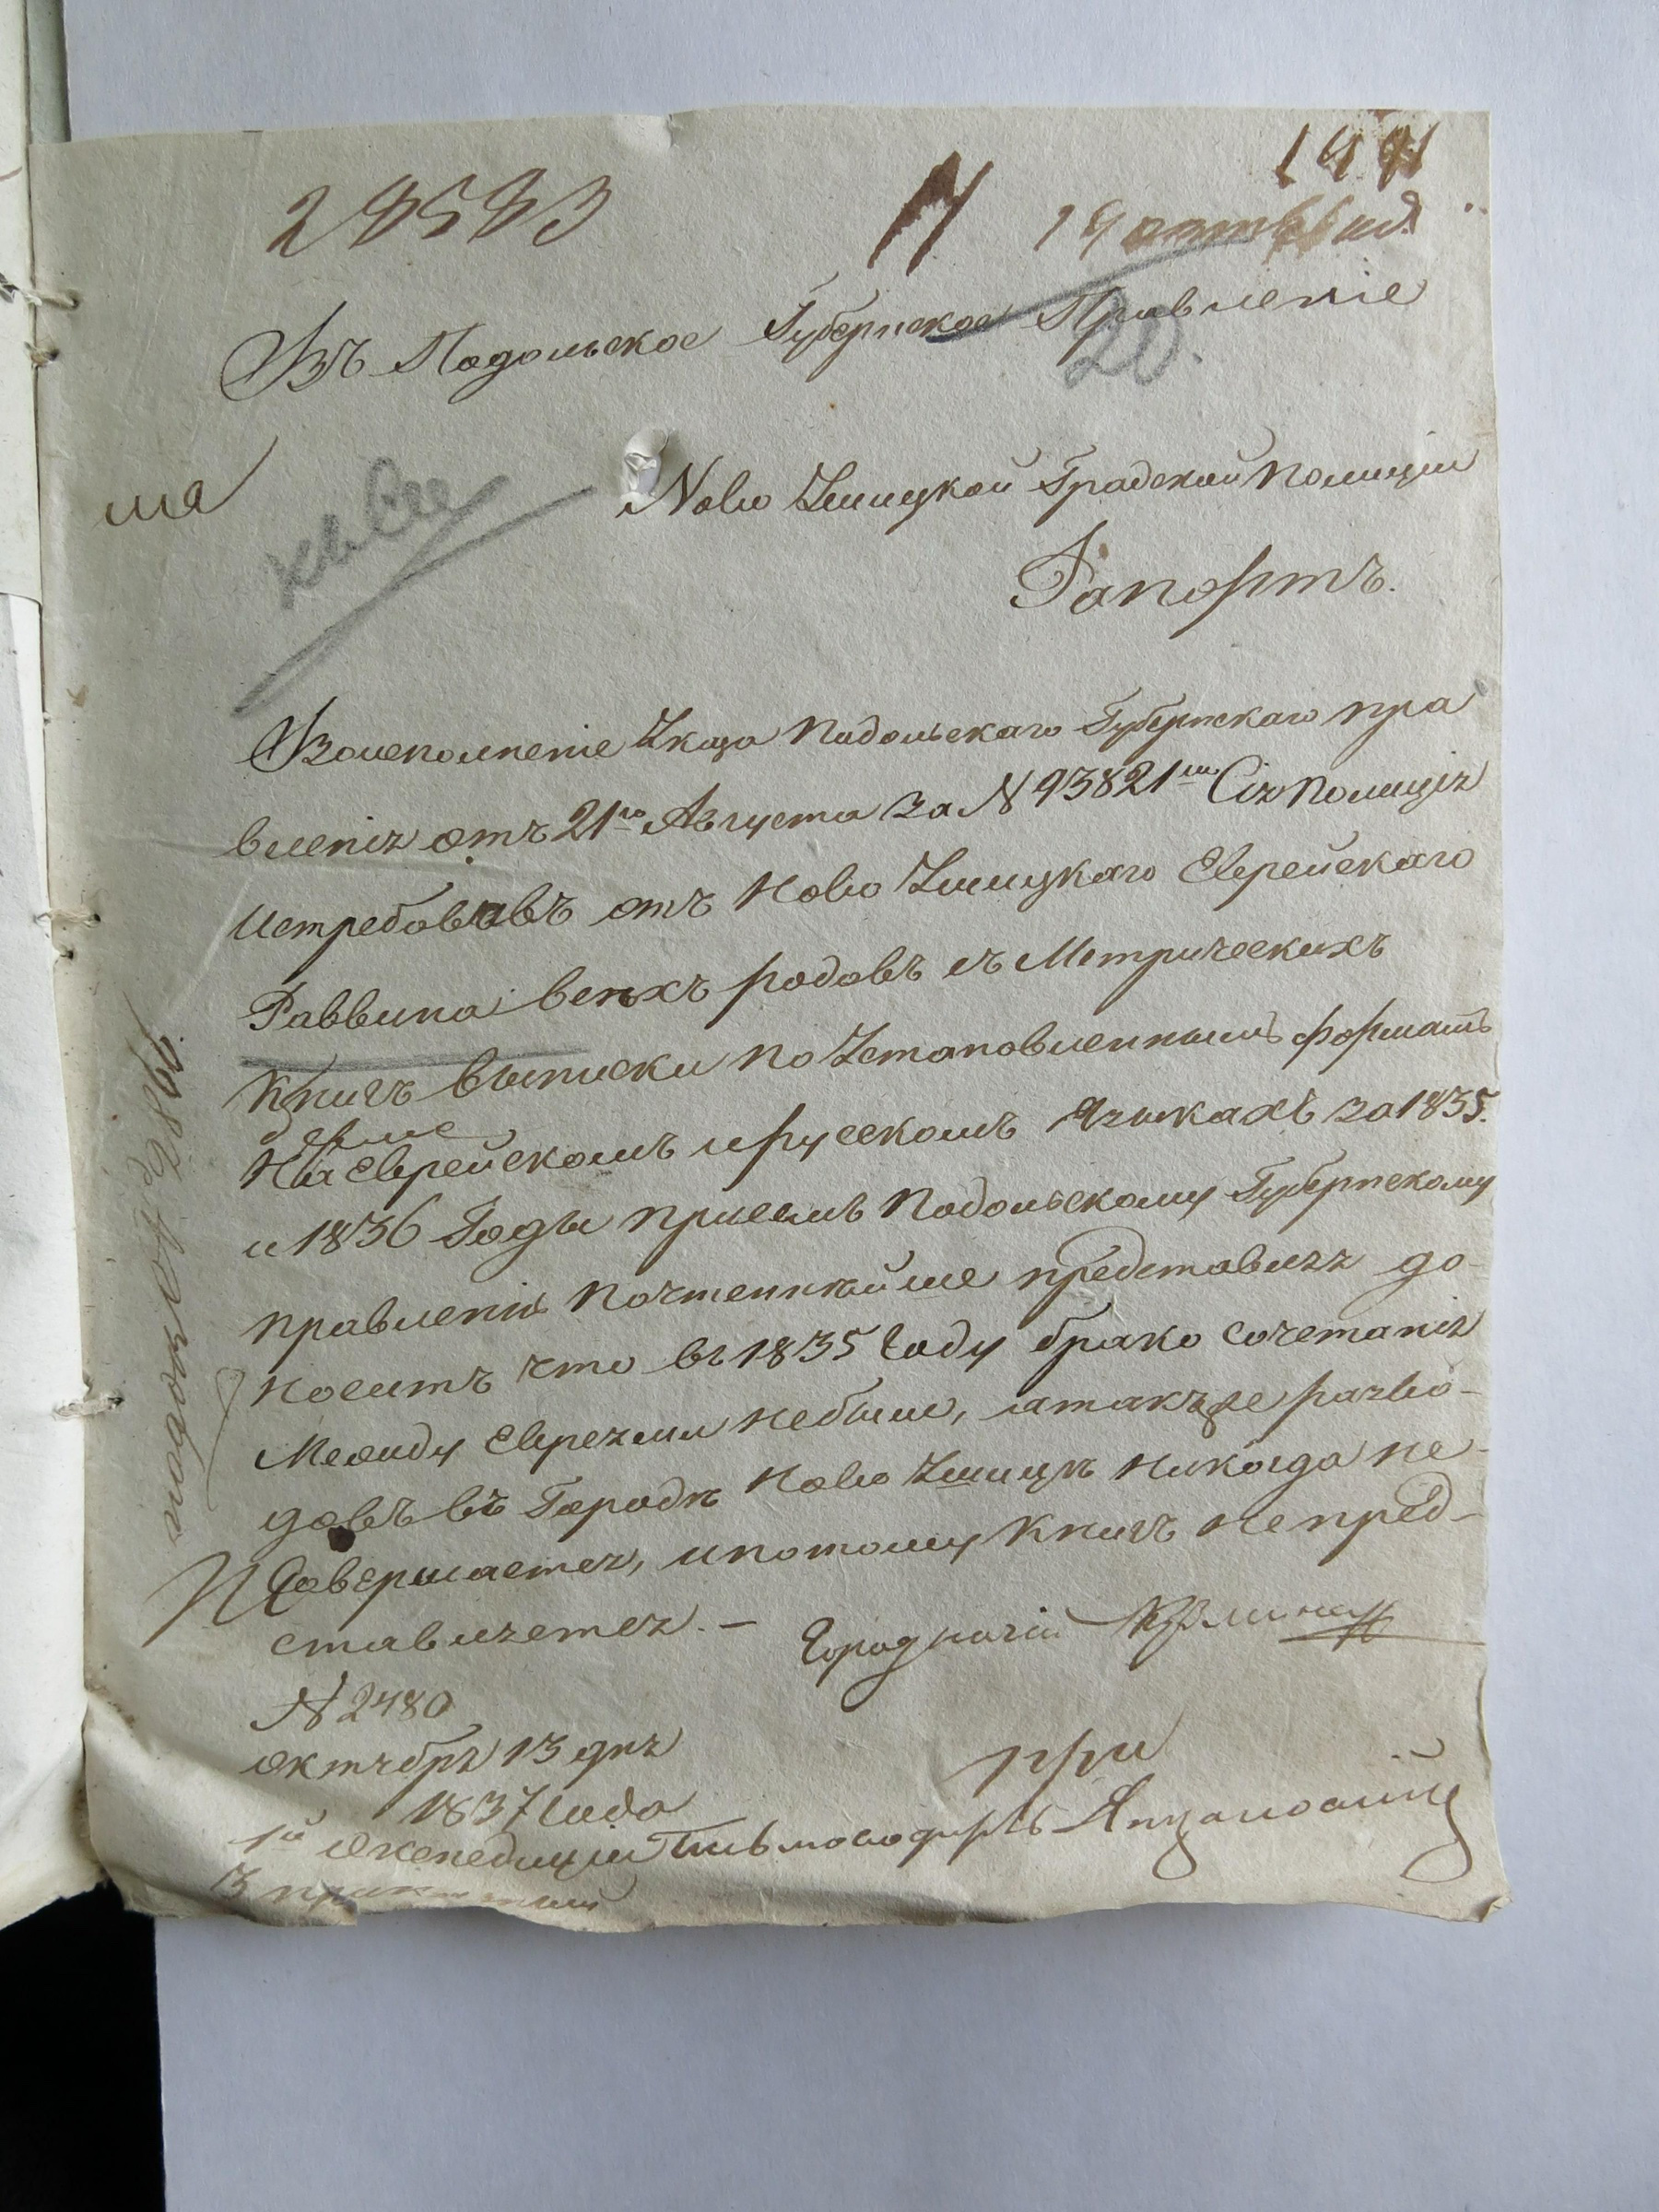 Въ Подольское Губернское Правленіе
20.
Ново Ушицкой Градской Полиціи
Рапортъ.
Воисполненіе Указа Подольскаго Губернскаго пра
вленія отъ 21го Августа за N 93821мъ Сія Полиція
истребовавъ отъ Ново Ушицкаго Еврейскаго
Раввина всехъ родовъ съ Метрическихъ
Книгъ выписки по Установленнымъ формамъ
На Еврейскомъ и Русскомъ Языкахъ за 1835.
и 1836 Годы при семъ Подольскому Губернскому
правленію почтеннейше представляя до-
носитъ что въ 1835 Году брако сочетанія
Между Евреями небыли, а такъже разво-
довъ въ Городе Ново Ушице Никогда не-
Совершается, и потому Книгъ не пред-
ставляется. –
Городничій
N 2480
Октября 13 дня
1837 Года
1й Экспедиціи
Письмоводитель